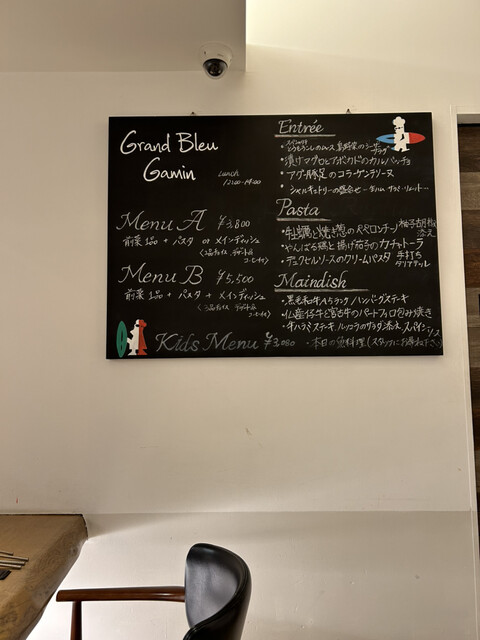 Grand Bleu
Gamin
Lunch
12:00-14:00
Menu A ¥3,800
前菜1品 + パスタ or メインディッシュ
Menu B ¥5,500
前菜1品 + パスタ + メインディッシュ
Kids Menu ¥3,080
Entrée
・とうもろこしのムース 島野菜の
・漬けマグロとアボカドのカルパッチョ
・アグー豚足のコラーゲンテリーヌ
・シャルキュトリーの盛合せ
Pasta
・牡蠣と焼き葱のペペロンチーノ 柚子胡椒
添え
・やんばる鶏と揚げ茄子のカチャトーラ
・デュクセルソースのクリームパスタ 手打ち
タリアテッレ
Maindish
・黒毛和牛A5ランク ハンバーグステキ
・仏産仔牛と宮古牛のパートフィロ包み焼き
・牛ハラミステキ ルッコラのサラダ添え スパイシー
ソース
・本日の魚料理(スタッフにお尋ね下さい)